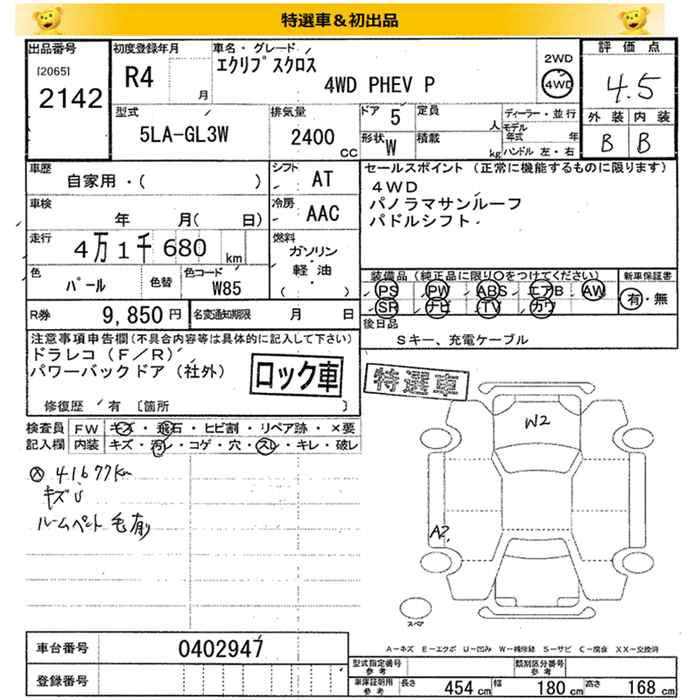 特選車&初出品
出品番号 初度登録年月 車名・グレード 評価点
[2065] 2142 R4 月 エクリプスクロス 2WD 4WD 4.5
4WD PHEV P
型式 排気量 ドア 5 定員 人 ディーラー・並行 外装 内装
5LA-GL3W 2400 CC 形状 W 積載 kg モデル年式 年 B B
ハンドル 左・右
車歴 自家用・( ) シフト AT セールスポイント (正常に機能するものに限ります)
4WD
パノラマサンルーフ
パドルシフト
車検 年 月( 日) 冷房 AAC
走行 4万1千680 km 燃料 ガソリン 軽油 ( )
色 パール 色替 色コード W85
装備品(純正品に限り○をつけてください) 新車保証書
PS PW ABS エアB AW 有・無
SR ナビ TV カワ
R券 9,850円 名変通知期限 月 日 後日品
Sキー、充電ケーブル
注意事項申告欄(不具合内容等は具体的に記入して下さい)
ドラレコ(F/R)
パワーバックドア(社外)
ロック車 特選車
修復歴 有 [箇所 ]
検査員 FW キズ・飛石・ヒビ割・リペア跡・×要
記入欄 内装 キズ・汚レ・コゲ・穴・スレ・キレ・破レ
41677km
キズU
ルームペット毛有り
W2
A2
スペア
A-キズ E-エクボ U-凹み W-補修跡 S-サビ C-腐食 XX-交換済
車台番号 0402947
登録番号
型式指定番号 参考 類別区分番号 参考
車庫証明用 参考 長さ 454cm 幅 180cm 高さ 168cm